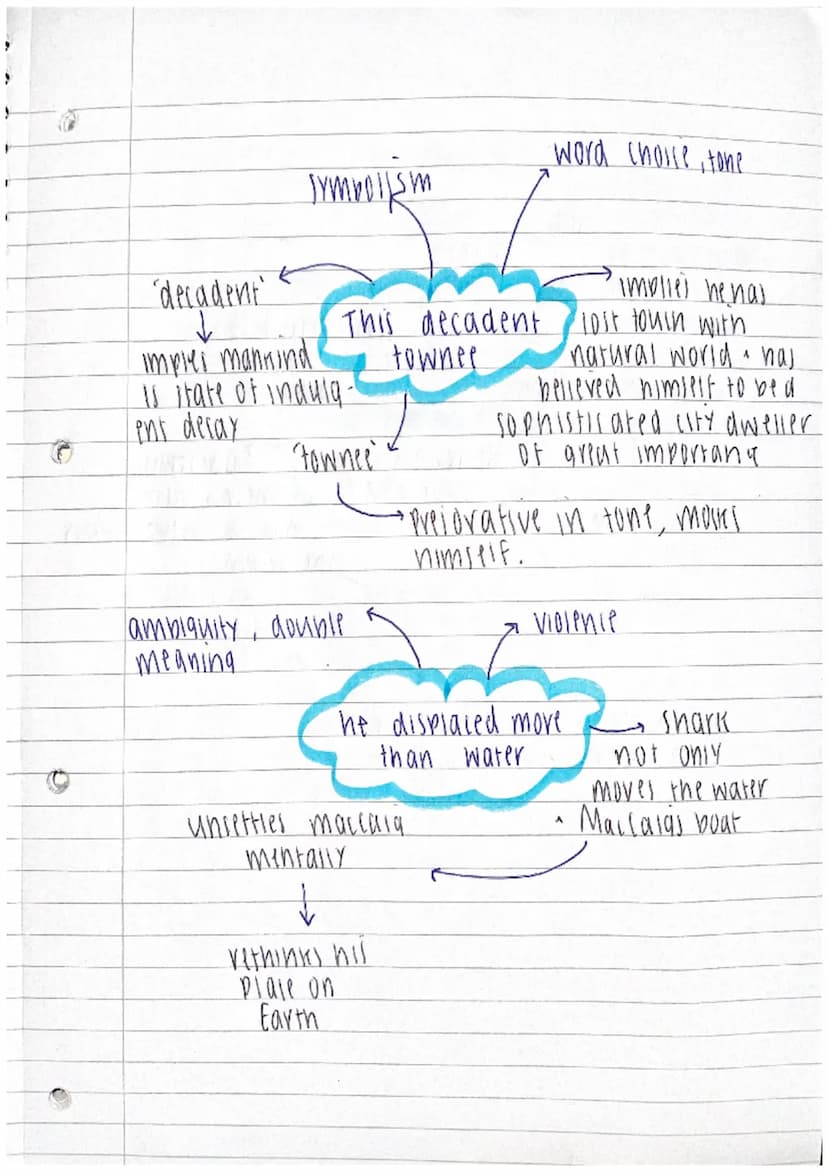 symbolism
word choice, tone
'decadent'
implies mankind
is state of indulg-
ent decay
This decadent
townee
implies he has
lost touch with
natural world + has
believed himself to be a
sophisticated city dweller
of great importanc
'townee'
prejorative in tone, mocks
himself.
ambiguity, double
meaning
violence
he displaced more
than water
shark
not only
moves the water
+ MacCaigs boat
unsettles maccaig
mentally
rethinks his
place on
Earth